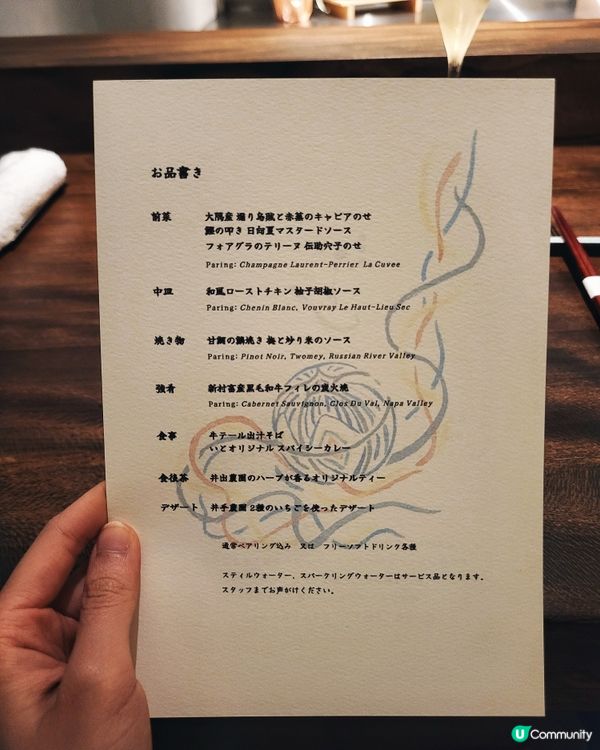 お品書き
前菜 大隅産 握り烏賊と赤茎のキャビアのせ
鰹の叩き 日向夏マスタードソース
フォアグラのテリーヌ 伝助穴子のせ
Paring: Champagne Laurent-Perrier La Cuvee
中皿 和風ローストチキン 柚子胡椒ソース
Paring: Chenin Blanc, Vouvray Le Haut-Lieu Sec
焼き物 甘鯛の鱗焼き 梅と炒り米のソース
Paring: Pinot Noir, Twomey, Russian River Valley
強肴 新村畜産黒毛和牛フィレの炭火焼
Paring: Cabernet Sauvignon, Clos Du Val, Napa Valley
食事 牛テール出汁そば
いとオリジナル スパイシーカレー
食後茶 井出農園のハーブが香るオリジナルティー
デザート 井手農園 2種のいちごを使ったデザート
通常ペアリング込み 又は フリーソフトドリンク各種
スティルウォーター、スパークリングウォーターはサービス品となります。
スタッフまでお声がけください。
U Community